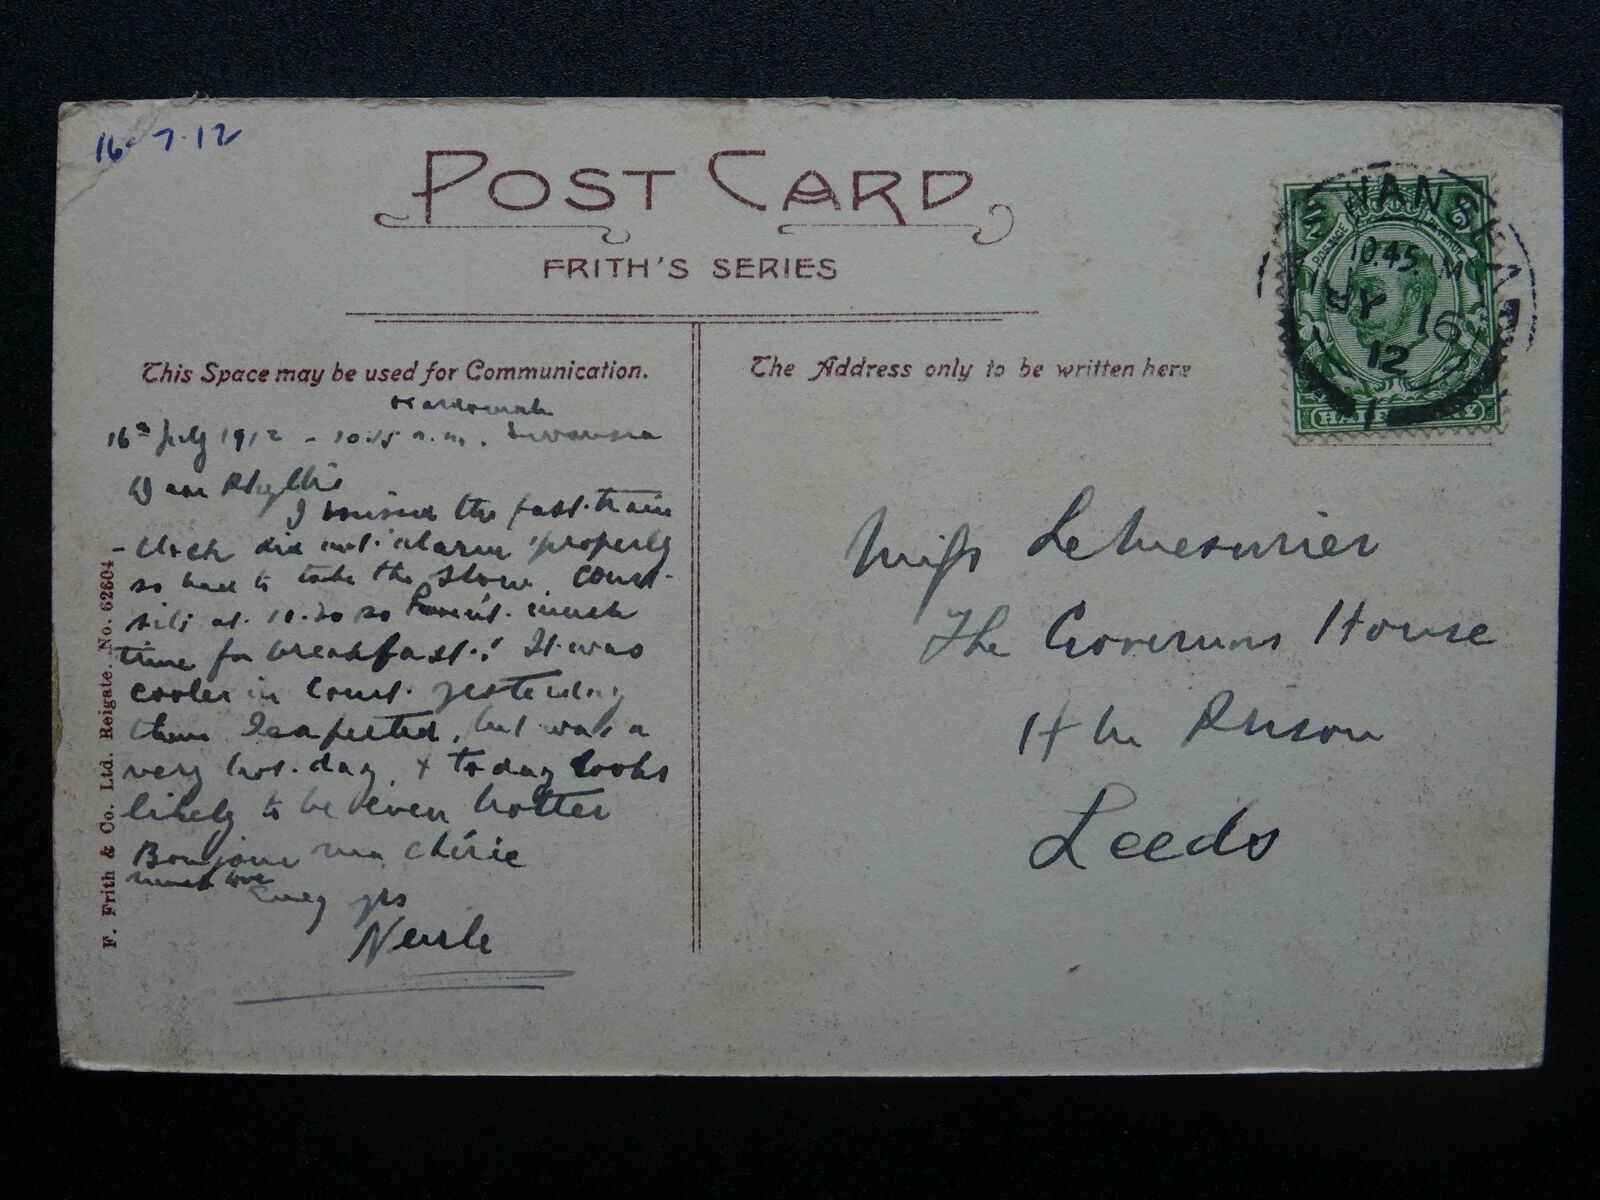 16-7-12
POST CARD
FRITH'S SERIES
This Space may be used for Communication.
The Address only to be written here
SWANSEA
10.45 M
JY 16
12
POSTAGE REVENUE
HALF
Kardomah
16th July 1912 - 10.15 a.m. Swansea
Dear Phyllis
I missed the fast train
- clock did not alarm properly
so had to take the slow. Court
sits at 10.30 so haven't much
time for breakfast! It was
cooler in Court yesterday
than I expected, but was a
very hot day, & today looks
likely to be even hotter
Bonjour ma chérie
much love
yrs
F. Frith & Co. Ltd. Reigate. No. 62604
Miss LeMesurier
The Governors House
H M Prison
Leeds